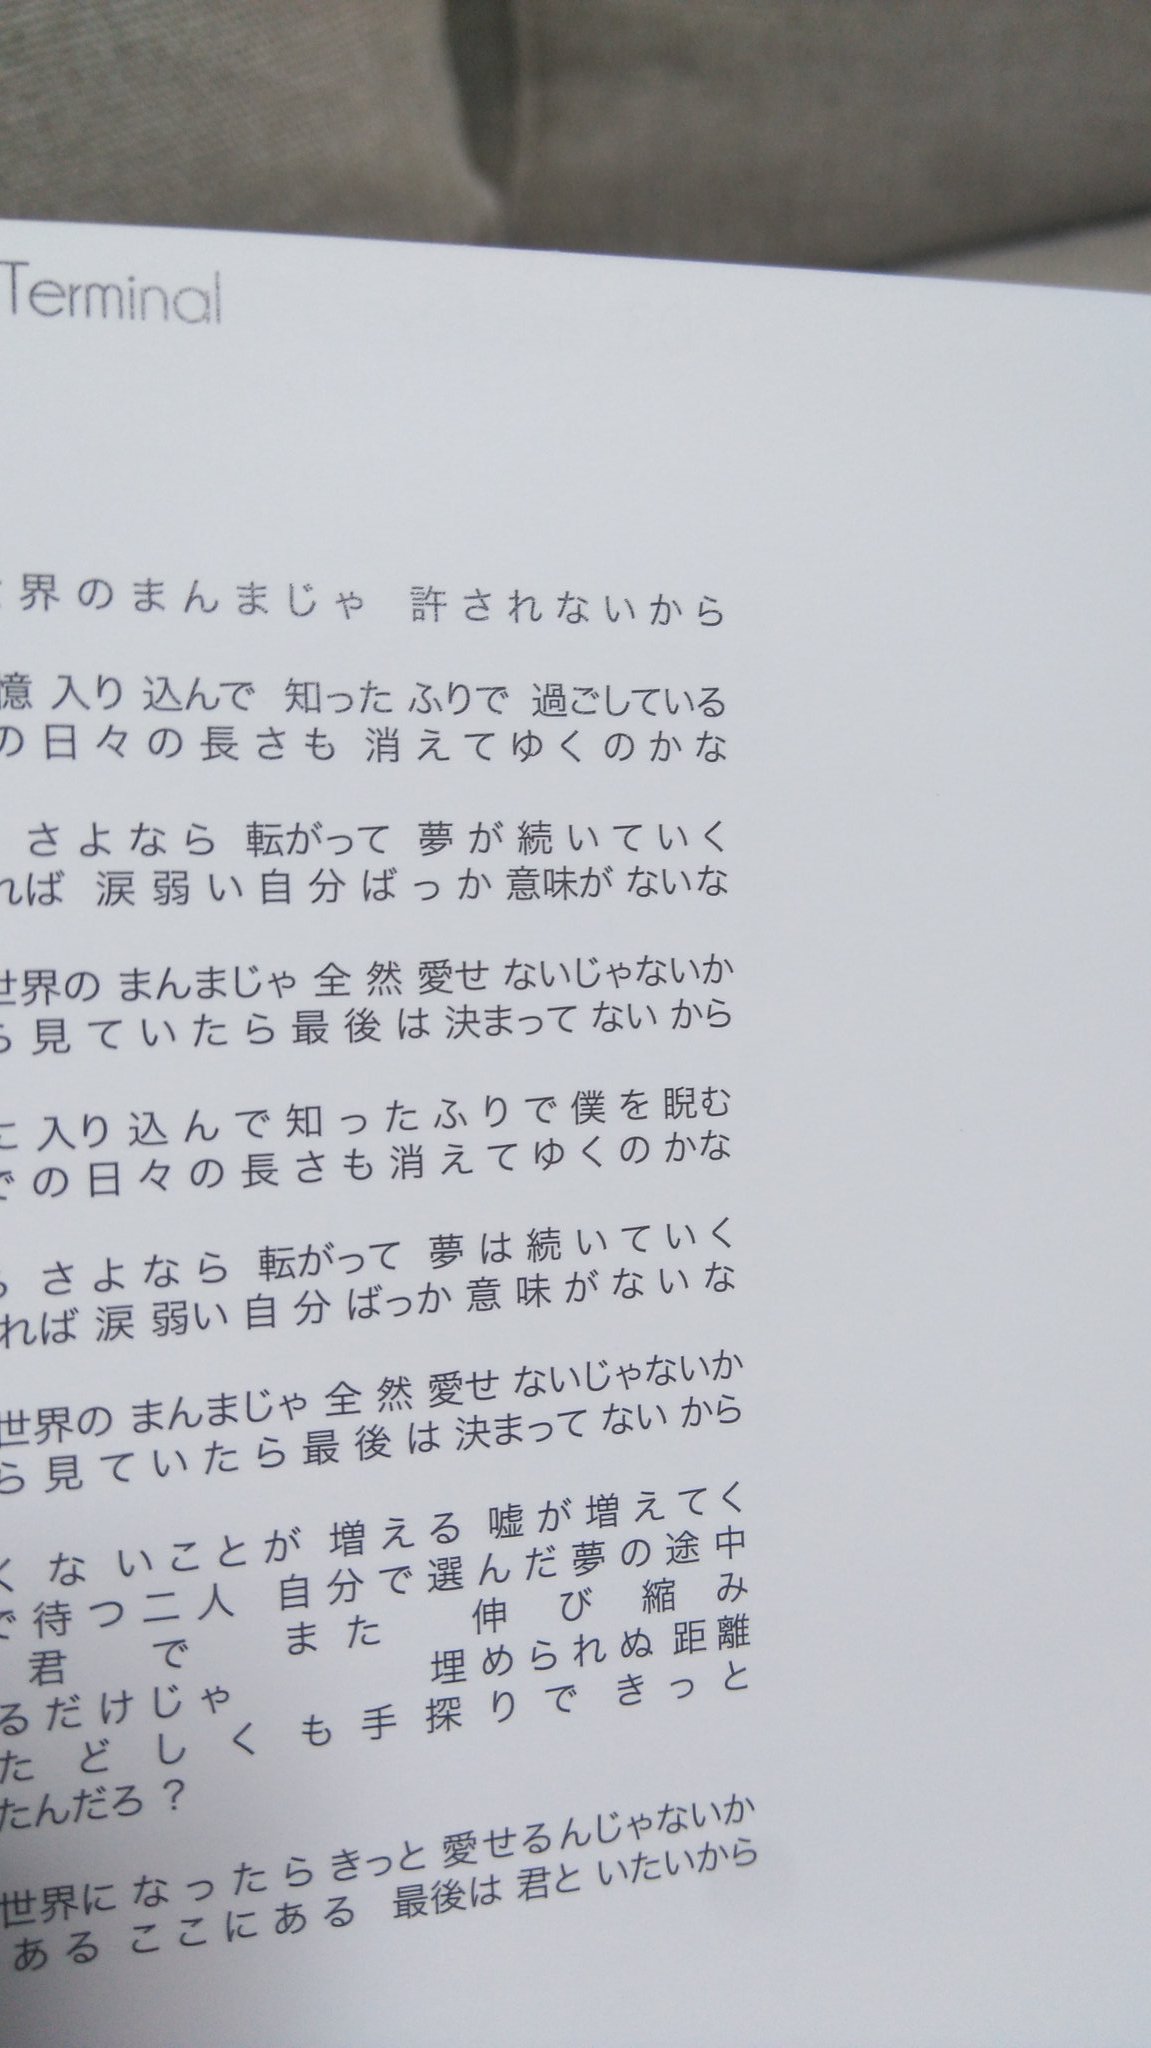 Terminal
界のまんまじゃ 許されないから
憶 入り 込んで 知った ふりで 過ごしている
の日々の長さも 消えてゆくのかな
さよなら 転がって 夢が続いていく
れば 涙弱い自分ばっか 意味が ないな
世界の まんまじゃ 全然 愛せ ないじゃないか
ら見ていたら最後は 決まって ない から
に 入り 込んで知ったふりで僕を 睨む
での日々の長さも消えてゆくのかな
さよなら 転がって 夢は続いていく
れば 涙 弱い 自分 ばっか 意味がないな
世界の まんまじゃ 全然 愛せ ないじゃないか
ら見ていたら最後は 決まって ない から
くないことが 増える 嘘が増えてく
で待つ二人 自分で選んだ夢の途中
君で また 伸び縮み
るだけじゃ 埋められぬ距離
たどしくも手探りできっと
たんだろ?
世界に なったら きっと 愛せるんじゃないか
ある ここにある 最後は 君と いたいから